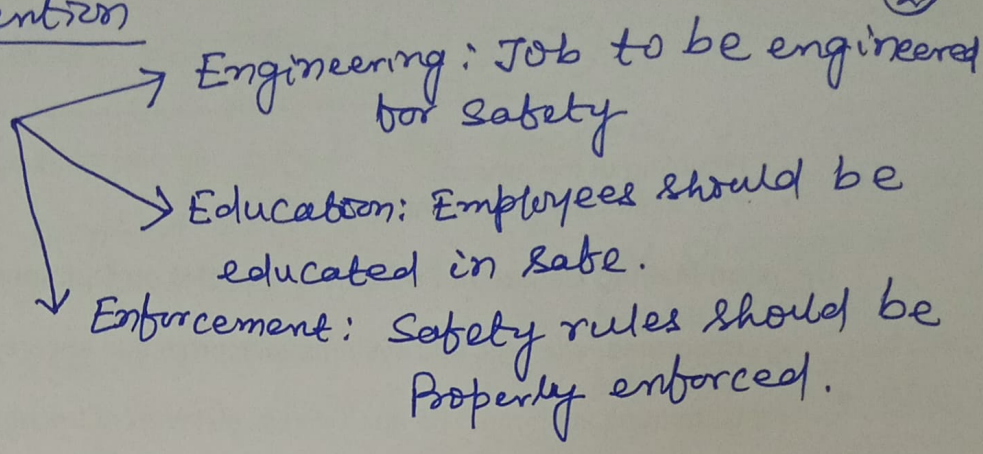 ention
Engineering: Job to be engineered
for safety
Education: Employees should be
educated in safe.
Enforcement: Safety rules should be
Properly enforced.